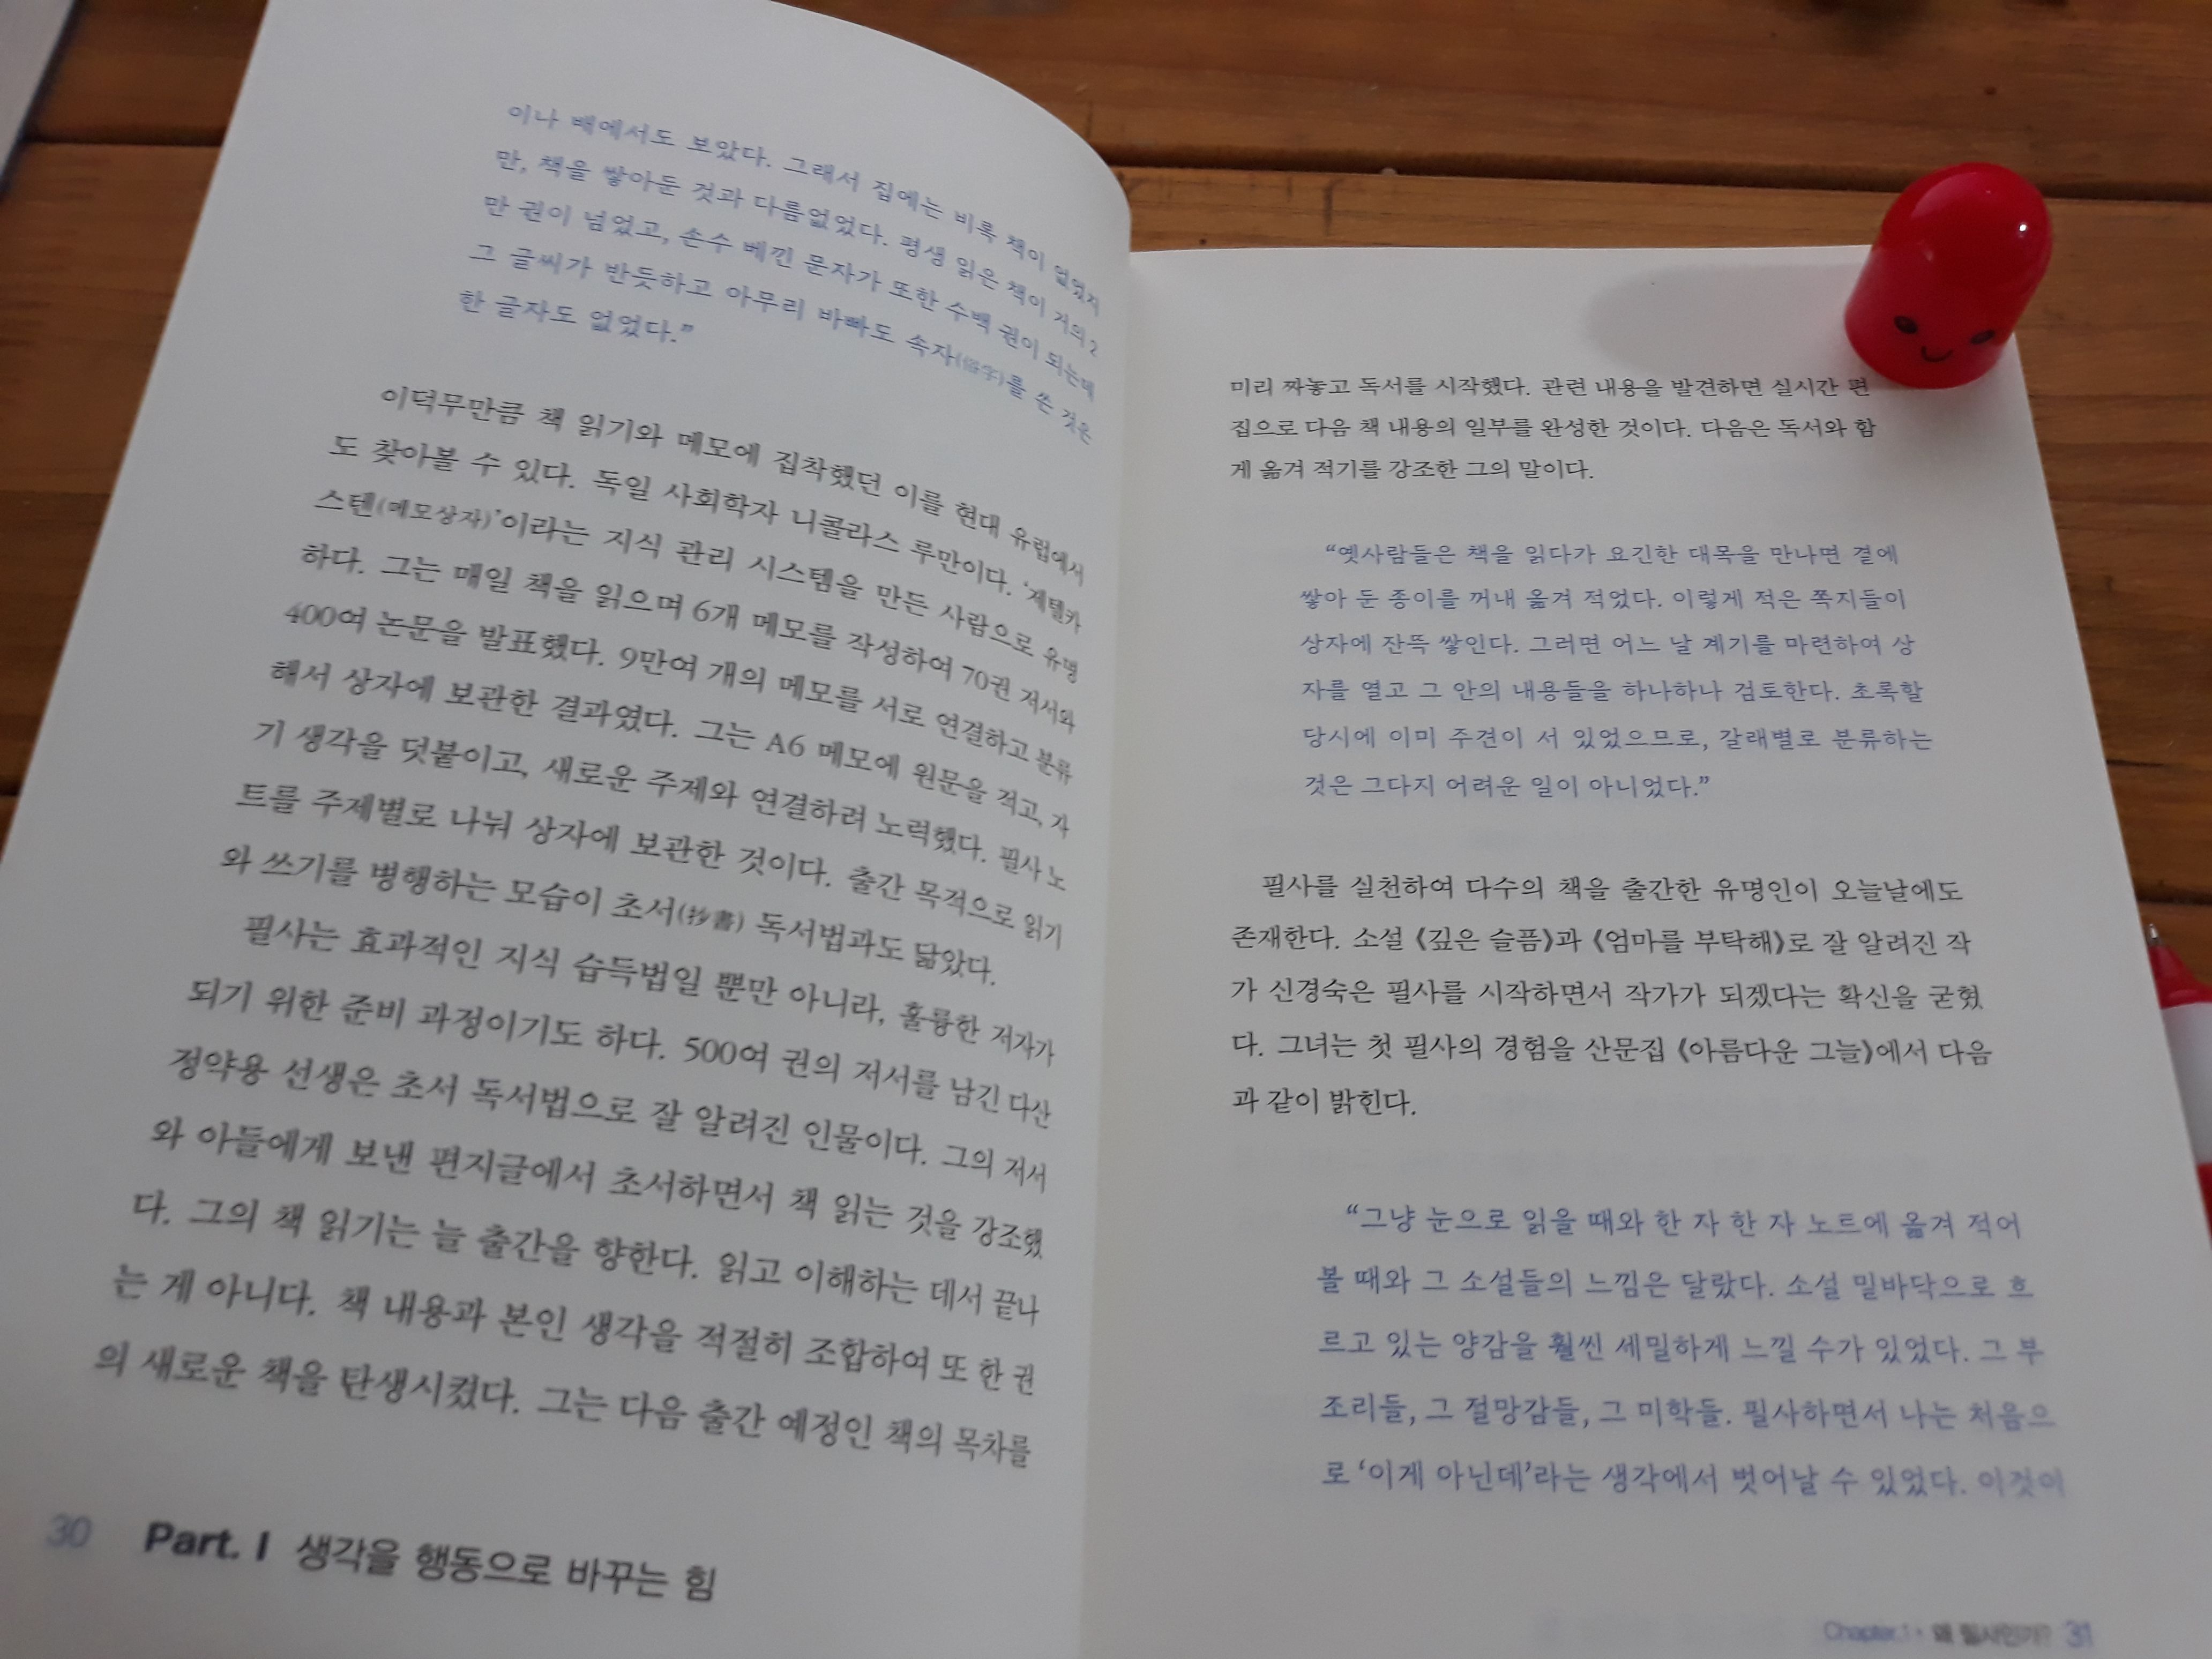 이나 배에서도 보았다. 그래서 집에는 비록 책이 없었지
만, 책을 쌓아둔 것과 다름없었다. 평생 읽은 책이 거의 2
만 권이 넘었고, 손수 베낀 문자가 또한 수백 권이 되는데
그 글씨가 반듯하고 아무리 바빠도 속자(俗字)를 쓴 것은
한 글자도 없었다.”
이덕무만큼 책 읽기와 메모에 집착했던 이를 현대 유럽에서
도 찾아볼 수 있다. 독일 사회학자 니콜라스 루만이다. ‘제텔카
스텐(메모상자)’이라는 지식 관리 시스템을 만든 사람으로 유명
하다. 그는 매일 책을 읽으며 6개 메모를 작성하여 70권 저서와
400여 논문을 발표했다. 9만여 개의 메모를 서로 연결하고 분류
해서 상자에 보관한 결과였다. 그는 A6 메모에 원문을 적고, 자
기 생각을 덧붙이고, 새로운 주제와 연결하려 노력했다. 필사 노
트를 주제별로 나눠 상자에 보관한 것이다. 출간 목적으로 읽기
와 쓰기를 병행하는 모습이 초서(抄書) 독서법과도 닮았다.
필사는 효과적인 지식 습득법일 뿐만 아니라, 훌륭한 저자가
되기 위한 준비 과정이기도 하다. 500여 권의 저서를 남긴 다산
정약용 선생은 초서 독서법으로 잘 알려진 인물이다. 그의 저서
와 아들에게 보낸 편지글에서 초서하면서 책 읽는 것을 강조했
다. 그의 책 읽기는 늘 출간을 향한다. 읽고 이해하는 데서 끝나
는 게 아니다. 책 내용과 본인 생각을 적절히 조합하여 또 한 권
의 새로운 책을 탄생시켰다. 그는 다음 출간 예정인 책의 목차를
30 Part. I 생각을 행동으로 바꾸는 힘
미리 짜놓고 독서를 시작했다. 관련 내용을 발견하면 실시간 편
집으로 다음 책 내용의 일부를 완성한 것이다. 다음은 독서와 함
께 옮겨 적기를 강조한 그의 말이다.
“옛사람들은 책을 읽다가 요긴한 대목을 만나면 곁에
쌓아 둔 종이를 꺼내 옮겨 적었다. 이렇게 적은 쪽지들이
상자에 잔뜩 쌓인다. 그러면 어느 날 계기를 마련하여 상
자를 열고 그 안의 내용들을 하나하나 검토한다. 초록할
당시에 이미 주견이 서 있었으므로, 갈래별로 분류하는
것은 그다지 어려운 일이 아니었다.”
필사를 실천하여 다수의 책을 출간한 유명인이 오늘날에도
존재한다. 소설 《깊은 슬픔》과 《엄마를 부탁해》로 잘 알려진 작
가 신경숙은 필사를 시작하면서 작가가 되겠다는 확신을 굳혔
다. 그녀는 첫 필사의 경험을 산문집 《아름다운 그늘》에서 다음
과 같이 밝힌다.
“그냥 눈으로 읽을 때와 한 자 한 자 노트에 옮겨 적어
볼 때와 그 소설들의 느낌은 달랐다. 소설 밑바닥으로 흐
르고 있는 양감을 훨씬 세밀하게 느낄 수가 있었다. 그 부
조리들, 그 절망감들, 그 미학들. 필사하면서 나는 처음으
로 ‘이게 아닌데’라는 생각에서 벗어날 수 있었다. 이것이
Chapter.1 · 왜 필사인가? 31